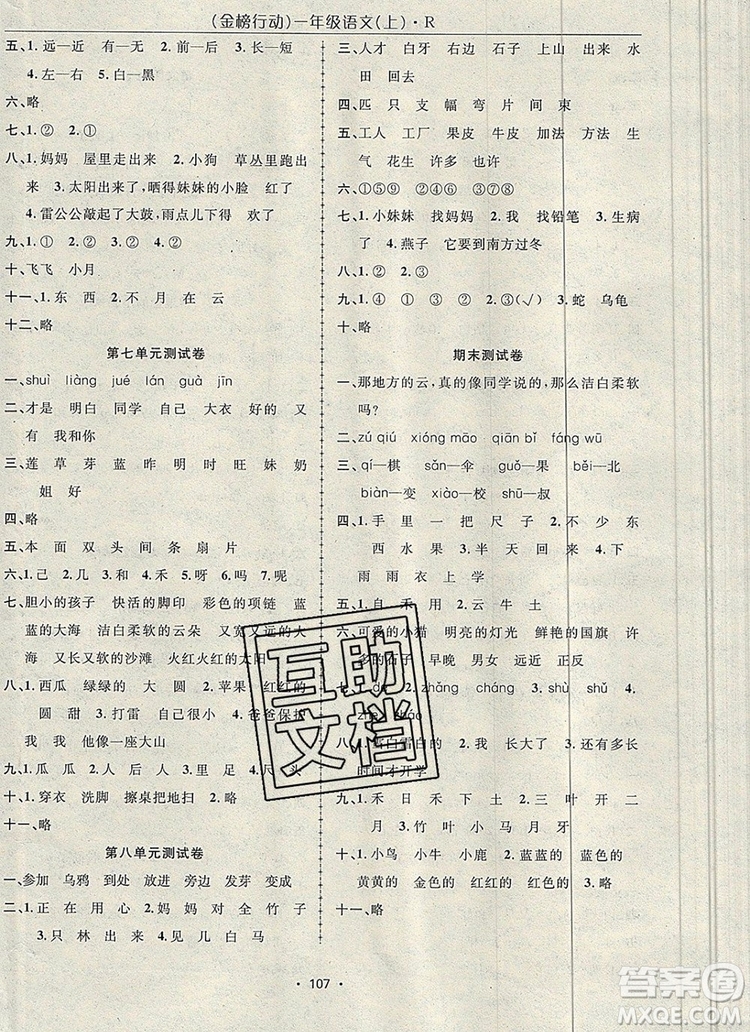 (金榜行动)一年级语文(上)·R
五、1. 远—近 有—无 2. 前—后 3. 长—短
4. 左—右 5. 白—黑
六、略
七、1. ② 2. ①
八、1. 妈妈 屋里走出来 2. 小狗 草丛里跑出
来 3. 太阳出来了,晒得妹妹的小脸 红了
4. 雷公公敲起了大鼓,雨点儿下得 欢了
九、1. ① ② 2. ③ ④
十、飞飞 小月
十一、1. 东 西 2. 不 月 在 云
十二、略
第七单元测试卷
一、shuì liàng jué lán guà jīn
二、才是 明白 同学 自己 大衣 好的 又
有 我和你
三、莲 草 芽 蓝 昨 明 时 晚 妹 奶 妈
姐 好
四、略
五、本 面 双 头 间 条 扇 片
六、1. 己 2. 了 3. 和 4. 在 5. 呀 6. 吗 7. 呢
七、胆小的孩子 快活的脚印 彩色的项链 蓝
蓝的大海 洁白柔软的云朵 又宽又远的大
海 又长又软的沙滩 火红火红的太阳
八、1. 西瓜 绿绿的 大 圆 2. 苹果 红红的
圆 甜 3. 打雷 下雨 4. 爸爸保护
我 我 他像一座大山
九、1. 瓜 瓜 2. 人 后 人 3. 己 4. 尺 头
十、1. 穿衣 洗脚 擦桌把地扫 2. 略
十一、略
第八单元测试卷
一、参加 乌鸦 到处 放进 旁边 发芽 变成
二、1. 正 在 用 办 心 2. 竹 牙 对 全 能
3. 只 林 出 来 4. 见 儿 白 马
三、人才 白牙 右边 石子 上山 出来 水
田 回去
四、匹 只 支 幅 弯 片 间 束
五、工人 工厂 果皮 牛皮 加法 方法 生
气 花生 许多 也许
六、①⑤⑨ ②③④ ⑥⑦⑧
七、1. 小妹妹 找妈妈 2. 我 找铅笔 3. 生病
了 4. 燕子 它要到南方过冬
八、1. ② 2. ① 3. ②
九、1. ①④②③ 2. ②(√) 3. 蛇 乌龟
十、略
期末测试卷
一、那地方的云,真的像同学说的,那么洁白柔软
吗?
二、zú qiú xióng māo qiān bǐ fáng wū
三、qí—棋 sǎn—伞 guǒ—果 běi—北
biàn—变 xiào—校 shū—叔
四、1. 手 里 一 把 尺 子 2. 不 少 东
西 水 果 3. 半 天 回 来 下
雨 雨 衣 上 学
五、1. 禾 自 2. 云 牛 土
六、可爱的小猫 明亮的灯光 鲜艳的国旗 许
多的石子 早晚 男女 远近 正反
七、1. de dì 2. zhǎng cháng 3. shù shǔ 4.
八、1. 雪白雪白的 2. 我 长大了 3. 还有些
时间才开学
九、1. 禾 日 禾 下 土 2. 三 叶 开 二
月 3. 竹 叶 小 马 月 牙
十、1. 小鸟 小牛 小鹿 2. 蓝蓝的 蓝色的
黄黄的 金色的 红红的 红色的
十一、略
互助
文档
· 107 ·
答案圈
MXQE.COM